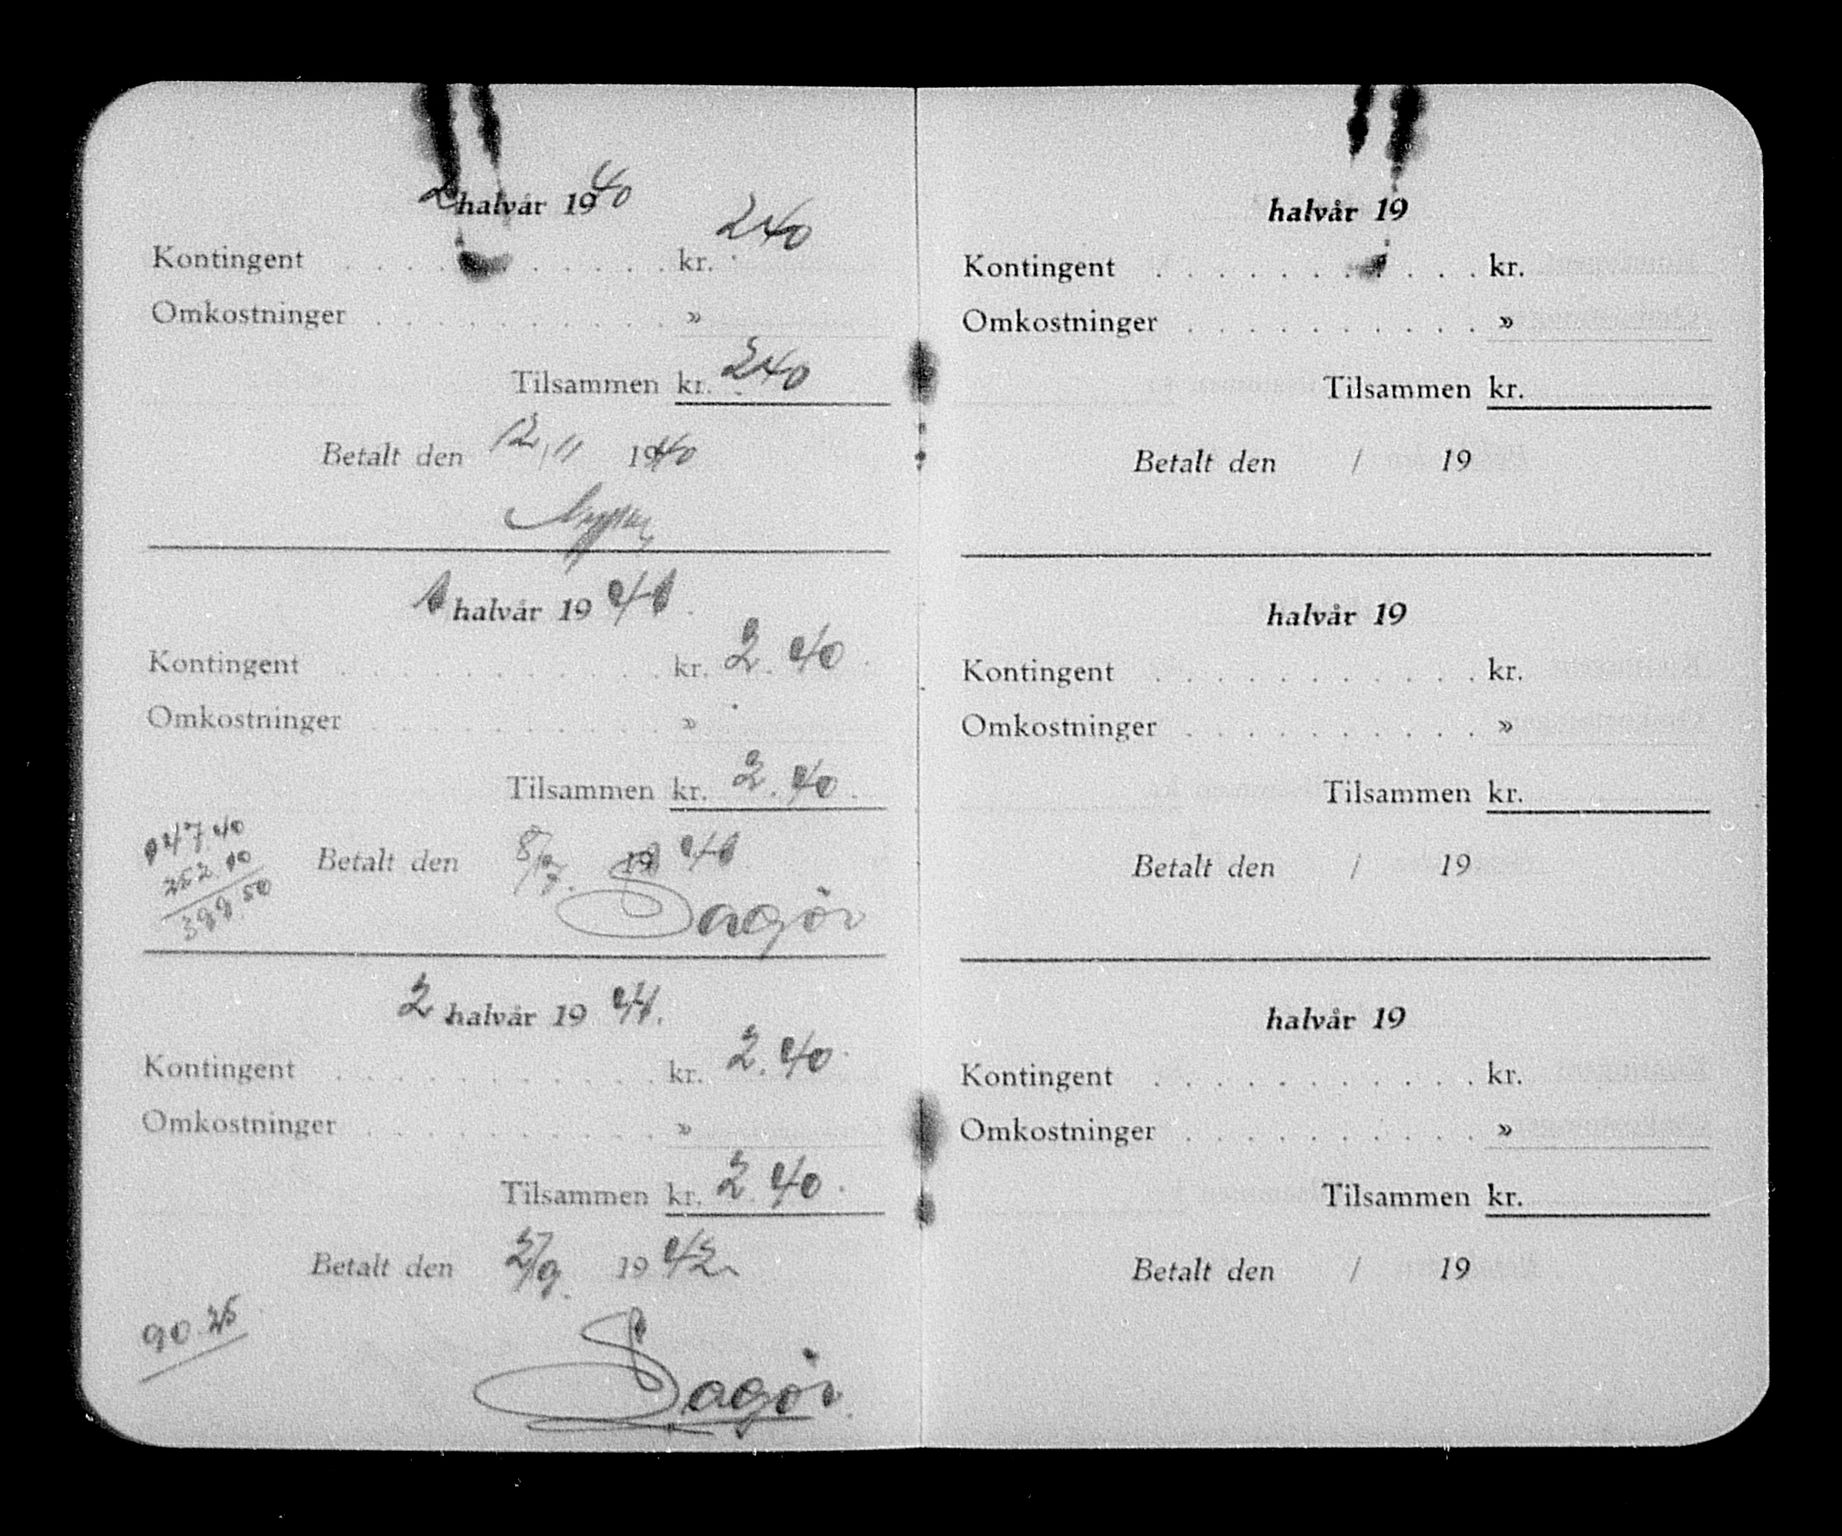 2 halvår 1940
Kontingent . . . . . . . . . . . kr. 240
Omkostninger . . . . . . . . . . »
Tilsammen kr. 240
Betalt den 12/11 1940
1 halvår 19 41.
Kontingent . . . . . . . . . . . kr. 2.40.
Omkostninger . . . . . . . . . . »
Tilsammen kr. 2.40.
147.40
Betalt den 8/7. 19 41
252.10
399.50
Sagör
2 halvår 19 41.
Kontingent . . . . . . . . . . . kr. 2.40.
Omkostninger . . . . . . . . . . »
Tilsammen kr. 2.40.
Betalt den 27/9. 19 42
90.25
Sagör.
halvår 19
Kontingent . . . . . . . . . . . kr.
Omkostninger . . . . . . . . . . »
Tilsammen kr.
Betalt den / 19
halvår 19
Kontingent . . . . . . . . . . . kr.
Omkostninger . . . . . . . . . . »
Tilsammen kr.
Betalt den / 19
halvår 19
Kontingent . . . . . . . . . . . kr.
Omkostninger . . . . . . . . . . »
Tilsammen kr.
Betalt den / 19